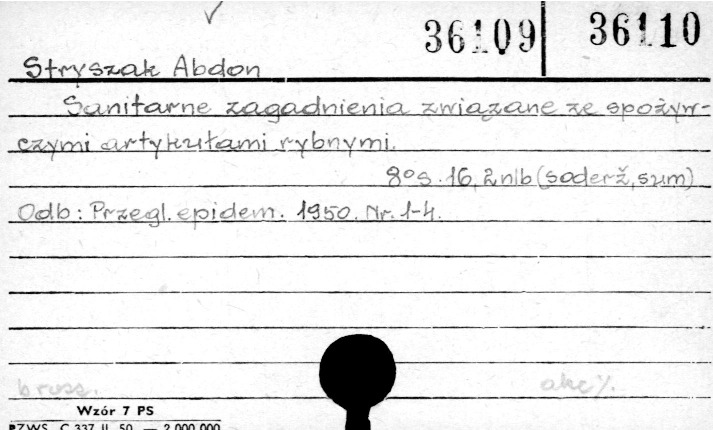 36109 36110
Stryszak Abdon
Sanitarne zagadnienia związane ze spożyw-
czymi artykułami rybnymi.
8° s. 16, 2 nlb (soderž, sum)
Odb: Przegl. epidem. 1950. Nr. 1-4.
brosz.
Wzór 7 PS
PZWS. C 337 II. 50. — 2.000.000